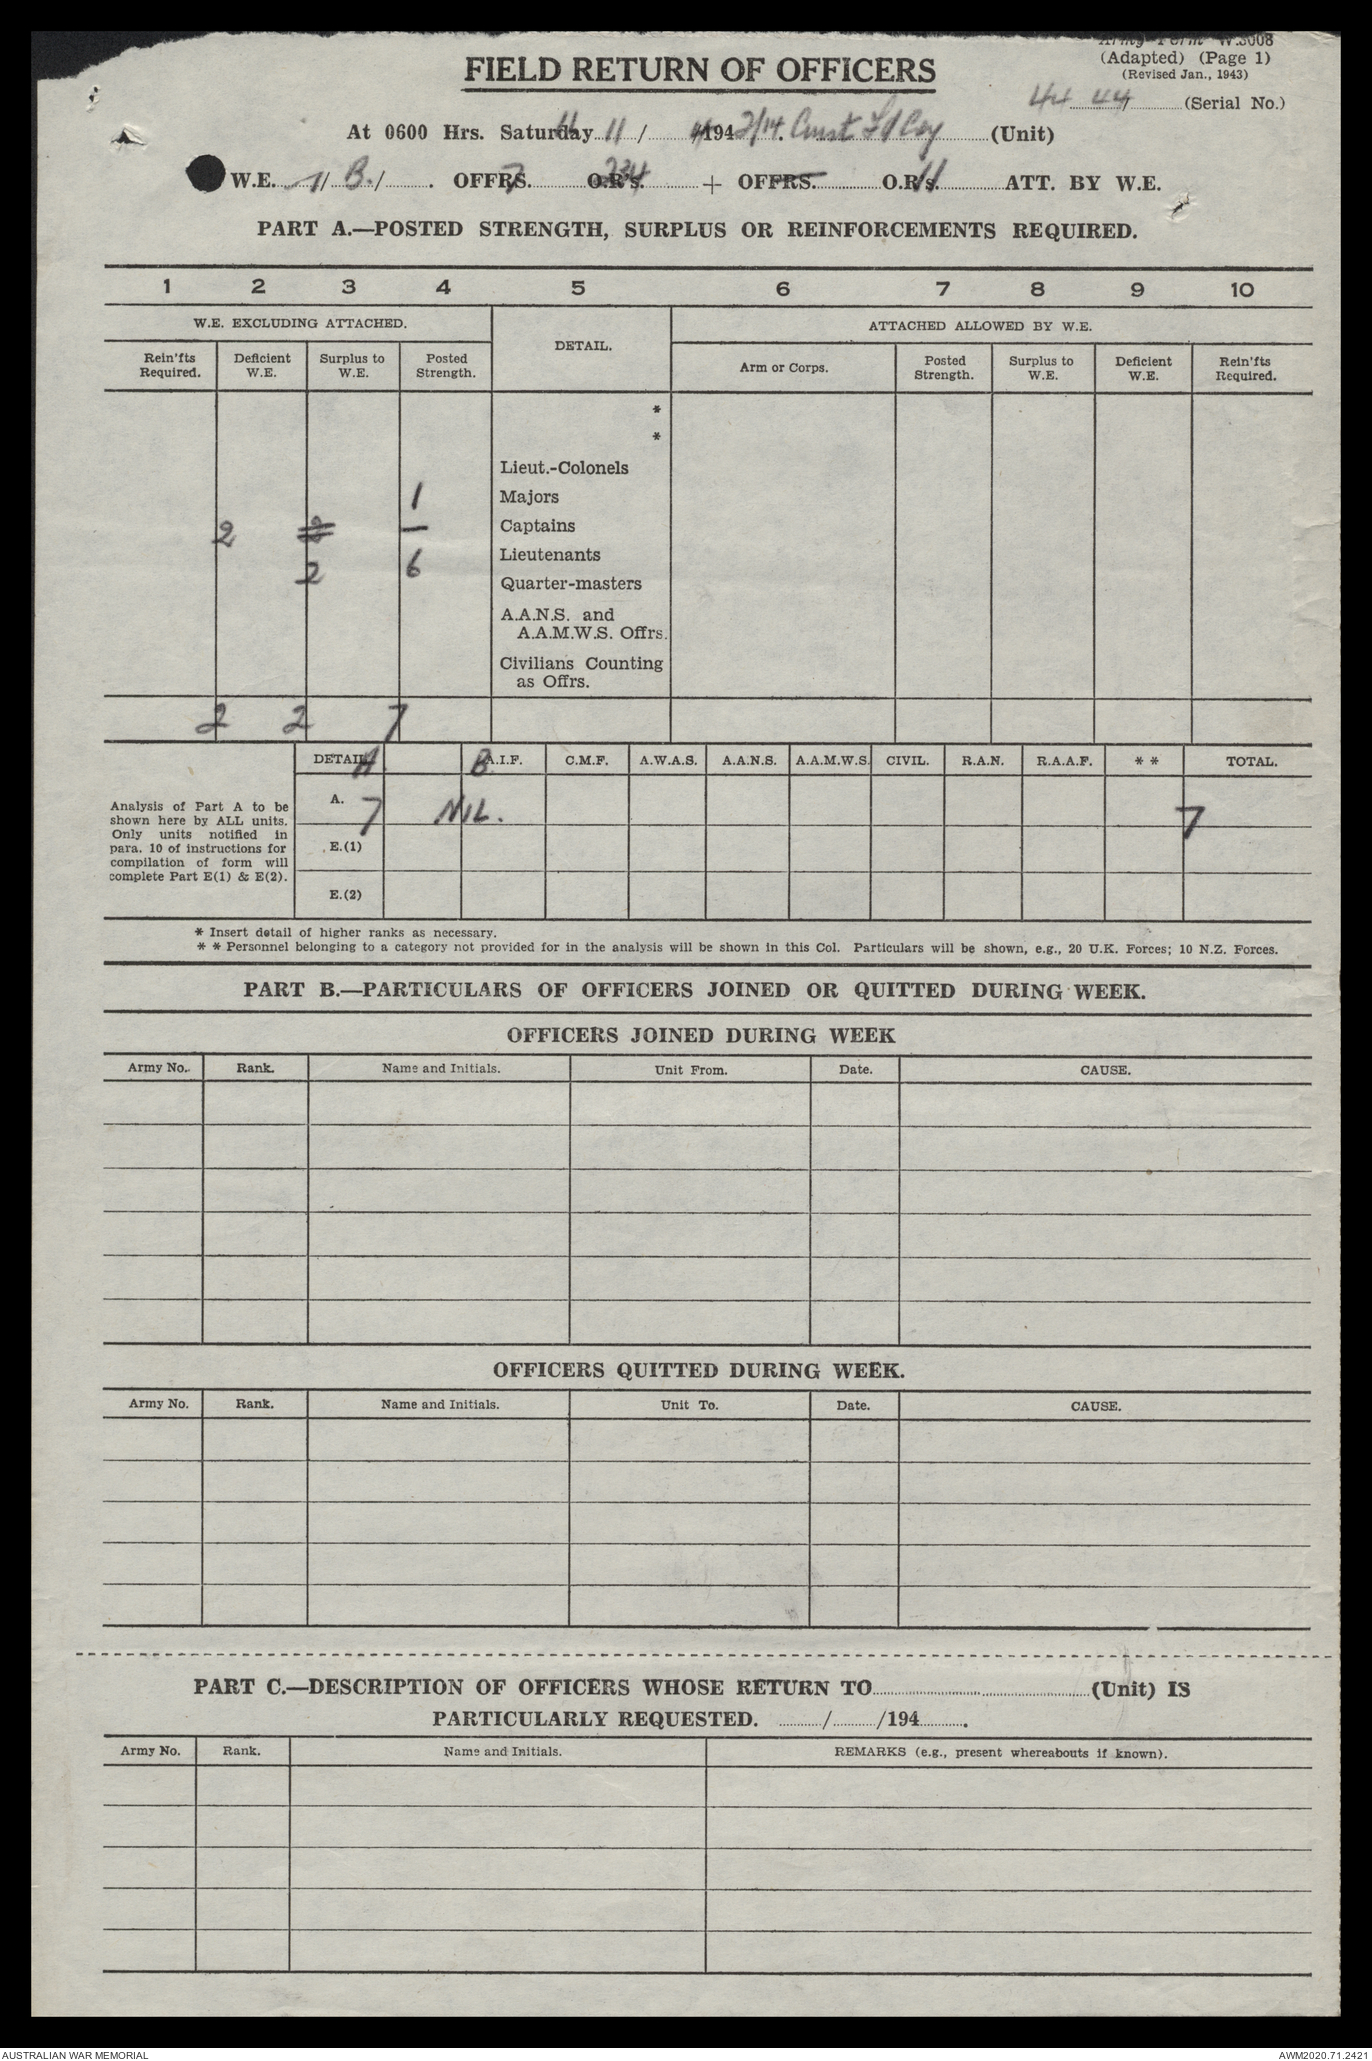 Army Form W.3008
(Adapted) (Page 1)
(Revised Jan., 1943)
FIELD RETURN OF OFFICERS
44 44/ (Serial No.)
At 0600 Hrs. Saturday 11 / 11 / 194 4. 2/14 Aust Fd Coy (Unit)
W.E. / 1 / B. / . OFFRS. 7 O.R's. 234 + OFFRS. — O.R's. 11 ATT. BY W.E.
PART A.—POSTED STRENGTH, SURPLUS OR REINFORCEMENTS REQUIRED.
1 2 3 4 5 6 7 8 9 10
W.E. EXCLUDING ATTACHED. DETAIL. ATTACHED ALLOWED BY W.E.
Rein'fts Required. Deficient W.E. Surplus to W.E. Posted Strength. Arm or Corps. Posted Strength. Surplus to W.E. Deficient W.E. Rein'fts Required.
*
*
Lieut.-Colonels
1 Majors
2 2 — Captains
2 6 Lieutenants
Quarter-masters
A.A.N.S. and
A.A.M.W.S. Offrs.
Civilians Counting
as Offrs.
2 2 7
DETAIL. A B A.I.F. C.M.F. A.W.A.S. A.A.N.S. A.A.M.W.S. CIVIL. R.A.N. R.A.A.F. * * TOTAL.
Analysis of Part A to be
shown here by ALL units.
Only units notified in
para. 10 of instructions for
compilation of form will
complete Part E(1) & E(2).
A. 7 NIL. 7
E.(1)
E.(2)
* Insert detail of higher ranks as necessary.
* * Personnel belonging to a category not provided for in the analysis will be shown in this Col. Particulars will be shown, e.g., 20 U.K. Forces; 10 N.Z. Forces.
PART B.—PARTICULARS OF OFFICERS JOINED OR QUITTED DURING WEEK.
OFFICERS JOINED DURING WEEK
Army No. Rank. Name and Initials. Unit From. Date. CAUSE.
OFFICERS QUITTED DURING WEEK.
Army No. Rank. Name and Initials. Unit To. Date. CAUSE.
PART C.—DESCRIPTION OF OFFICERS WHOSE RETURN TO (Unit) IS
PARTICULARLY REQUESTED. / /194 .
Army No. Rank. Name and Initials. REMARKS (e.g., present whereabouts if known).
AUSTRALIAN WAR MEMORIAL
AWM2020.71.2421